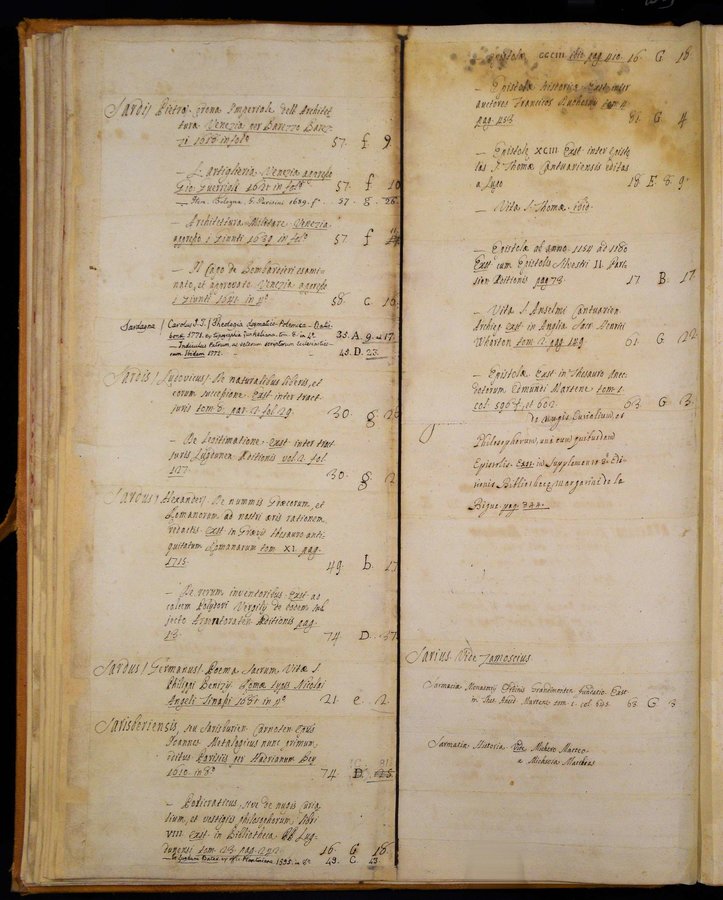 Sardis Pietro. Corona Imperiale dell' Architet
tura Venezia per Barezzo Barez-
zi 1618 in fol.º 57. f 9.
— L'Artiglieria Venezia appresso
Gio: Guerigli 1621 in fol.º 57. f 10
— Item. Bologna. 1689. fº. 57. g. 26.
— Architettura Militare. Venezia.
appresso i Giunti 1639 in fol.º 57. f
— Il Capo de Bombardieri esami-
nato, et approvato. Venezia appresso
i Giunti 1641. in 4º 58. c. 16.
Sardagna / Carolus / Theologia Dogmatico-Polemica. Ratis-
bonæ 1771. in 8º. 35. A. 9. 17.
— Indiculus Patrum ac veterum scriptorum ecclesiastico-
rum Ibidem 1772. — 43. D. 23.
Sardis / Ludovicus / De naturalibus liberis, et
eorum successione. Exst inter tract
iuris tom. 8. par. 2. fol. 29. 30. g.
— De legitimatione. Exst inter tract
iuris Lugdunen. Editionis vol. 2. fol.
127. 30. g. 2
Sardus / Alexander / De nummis Græcorum, et
Romanorum ad nostri æris rationem
redactis. Exst in Grævij thesauro anti-
quitatum Romanarum tom XI. pag.
1715. 49. b. 17
— De rerum inventoribus. Exst ad
calcem Polydori Vergilij de eodem sub
jecto Argentoraten. Editionis pag.
13. 74. D. 37
Sardus / Germanus / Poema Sacrum Vitæ S.
Philippi Benizij. Romæ typis Nicolai
Angeli Tinassi 1681 in 4º. 21. e. 2.
Sarisberiensis, seu Sarisburien. Carnoten. Epus
Joannes. Metalogicus nunc primum
editus Parisiis per Hadrianum Bey
1610. in 8º. 74. D.
— Policraticus, sive de nugis Curia
lium, et vestigiis philosophorum, libri
VIII. Exst. in Bibliotheca PP. Lug-
dunensi tom. 23. pag. 242 16. G. 18.
— Lugduni Batav. ex offic. Plantiniana 1595. in 8º. 43. C. 43.
— Epistolæ CCCIII ibid. pag. 410. 16. G. 18.
— Epistola historica exst inter
auctores Francicos Duchesnij tom 4
pag. 453 81. G. 4
— Epistolæ XCIII Exst. inter Episto
las S. Thomæ Cantuariensis editas
a Lupo 18. E. 8. 9.
— Vita S. Thomæ. ibid.
— Epistolæ ab anno 1154 ad 1180
Exst. cum Epistolis Silvestri II. Pari-
sien. Editionis pag. 78. 17. B. 17
— Vita S. Anselmi Cantuarien
Archiep. Exst in Anglia Sacr. Henrici
Wharton tom. 2. pag. 149. 61. G. 22
— Epistola. Exst in thesauro Anec
dotorum Edmundi Martene. tom. 1.
col. 596. et 602. 63. G. 3.
de nugis Curialium, et
Philosophorum, una cum quibusdam
Epistolis. Exst. in Supplemento 2æ Edi-
tionis Bibliothecæ Margarini de la
Bigne. pag. 344.
Sarius. Vide Zamoscius
Sarmaciæ Monasterij Ordinis Grandimonten. fundatio. Exst
in Thes. Anecd. Martene. tom. 1. col. 603. 63. G. 3
Sarmatia Historia. Vide Michovo Matteo
a Michovia Matthias